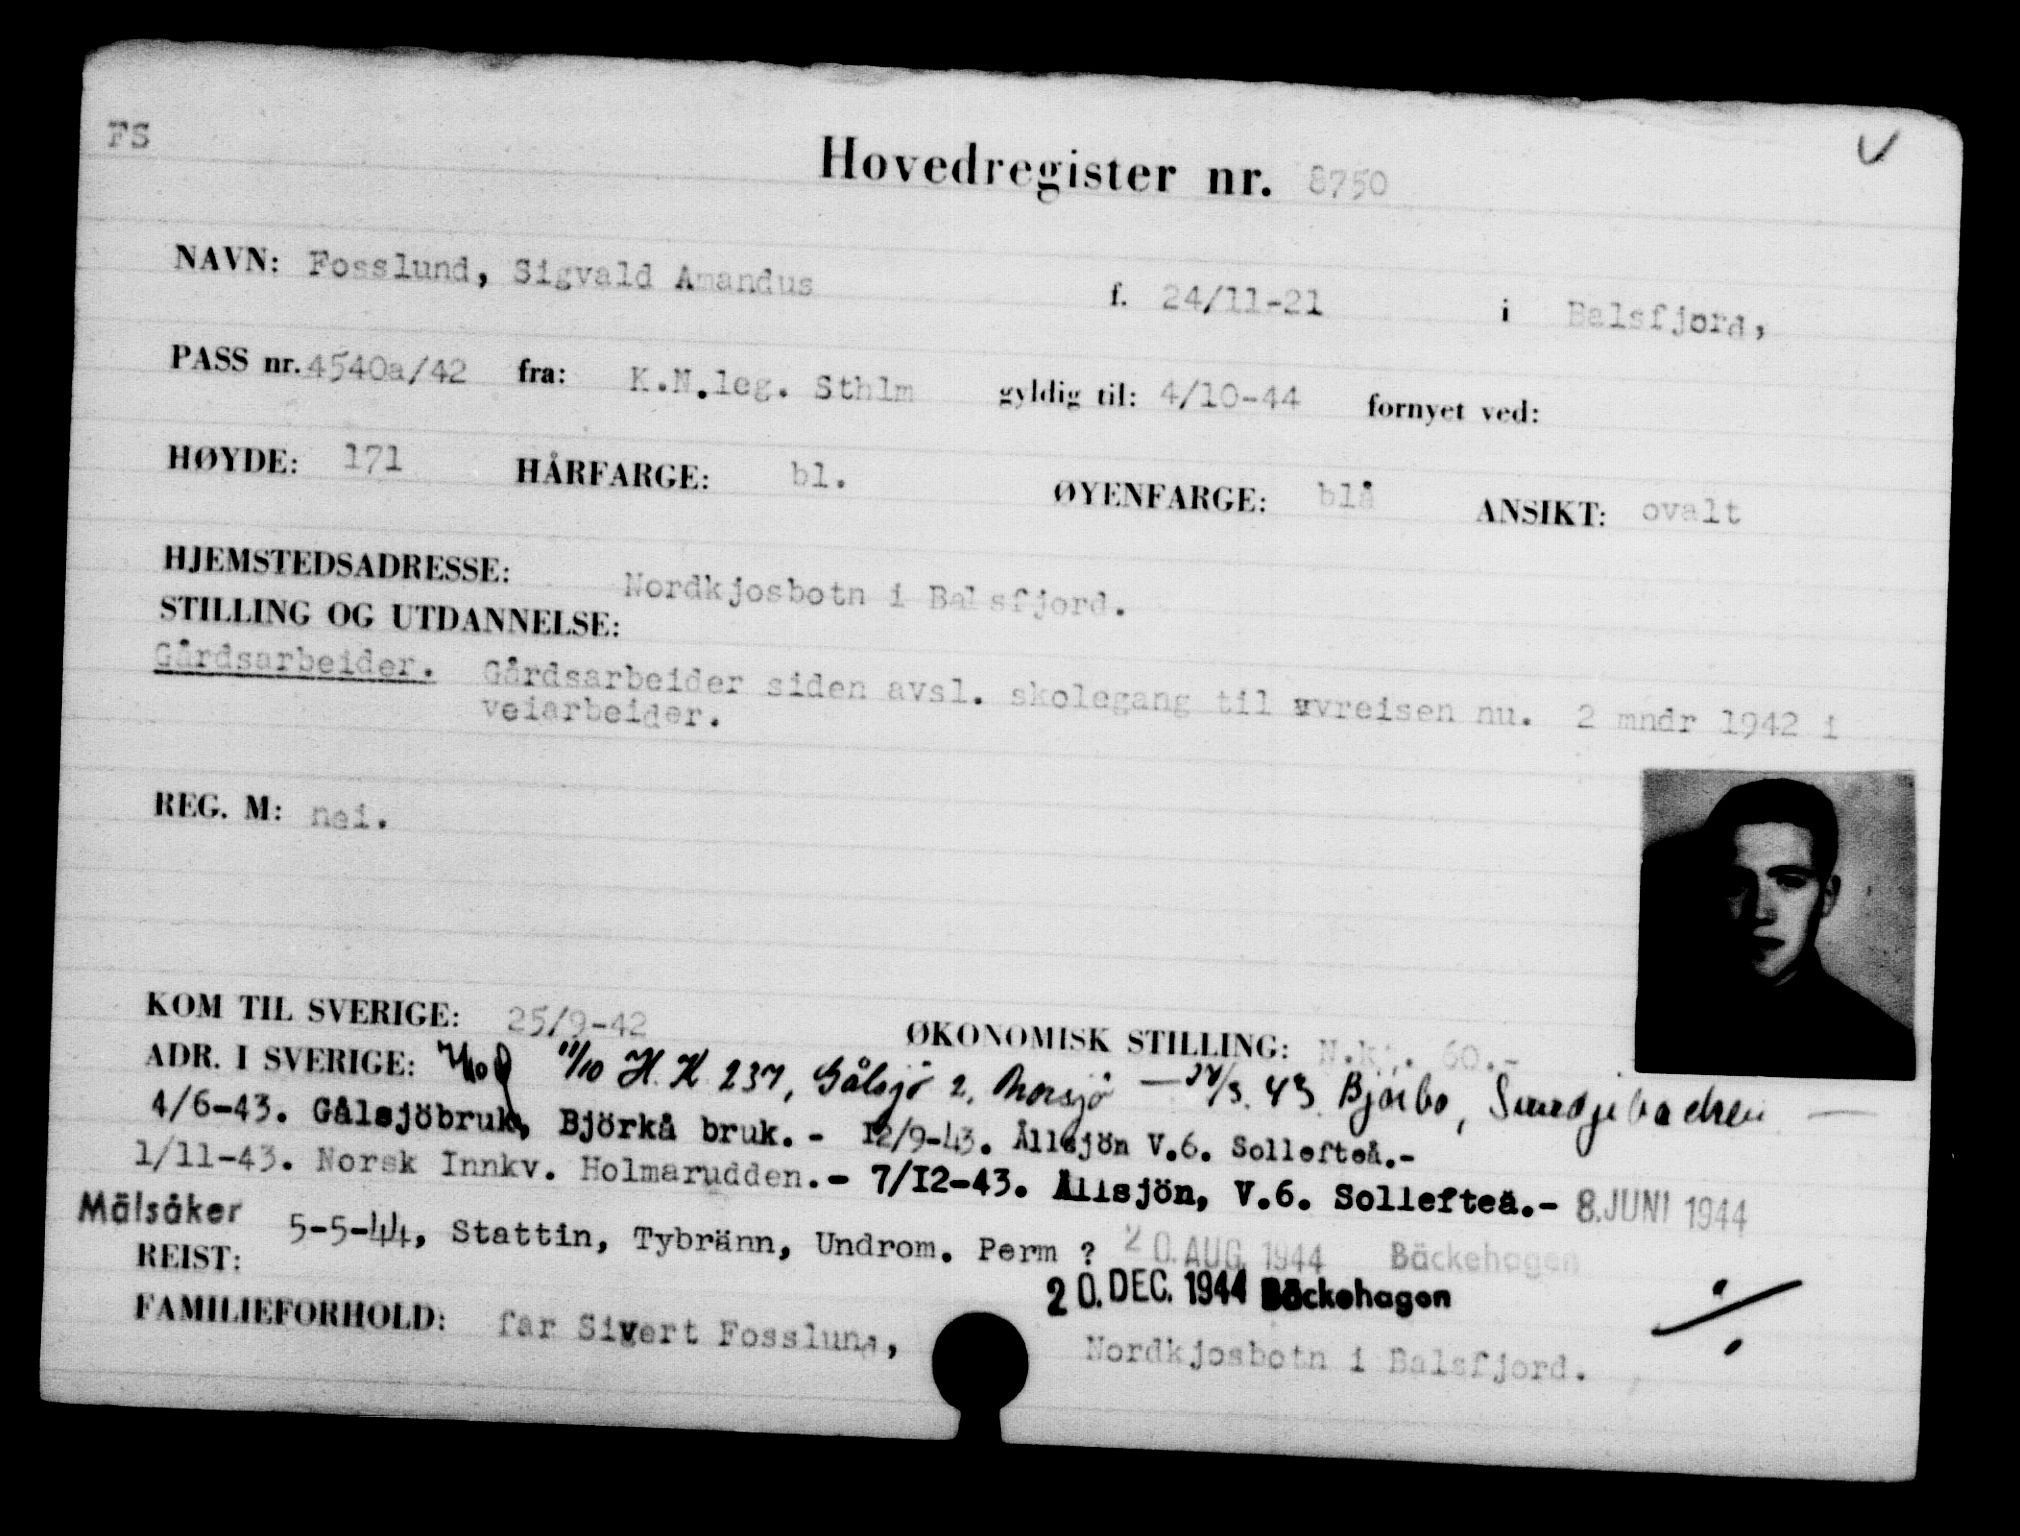 FS
Hovedregister nr. 8750
NAVN: Fosslund, Sigvald Amandus f. 24/11-21 i Balsfjord,
PASS nr. 4540a/42 fra: K.N.leg. Sthlm gyldig til: 4/10-44 fornyet ved:
HØYDE: 171 HÅRFARGE: bl. ØYENFARGE: blå ANSIKT: ovalt
HJEMSTEDSADRESSE: Nordkjosbotn i Balsfjord.
STILLING OG UTDANNELSE:
Gårdsarbeider. Gårdsarbeider siden avsl. skolegang til avreisen nu. 2 mndr 1942 i
veiarbeider.
REG. M: nei.
KOM TIL SVERIGE: 25/9-42 ØKONOMISK STILLING: N.kr. 60.-
ADR. I SVERIGE: 11/10 H.K. 237, Gålsjö 2, 43. Bjørbo,
4/6-43. Gålsjöbruk, Björkå bruk. - 12/9-43. Ållsjön V.6. Sollefteå.-
1/11-43. Norsk Innkv. Holmarudden.- 7/12-43. Ållsjön, V.6. Sollefteå.- 8. JUNI 1944
Mälsåker 5-5-44, Stattin, Tybränn, Undrom. Perm ? 20. AUG. 1944 Bäckehagen
REIST: 20. DEC. 1944 Bäckehagen
FAMILIEFORHOLD: far Sivert Fosslund, Nordkjosbotn i Balsfjord.